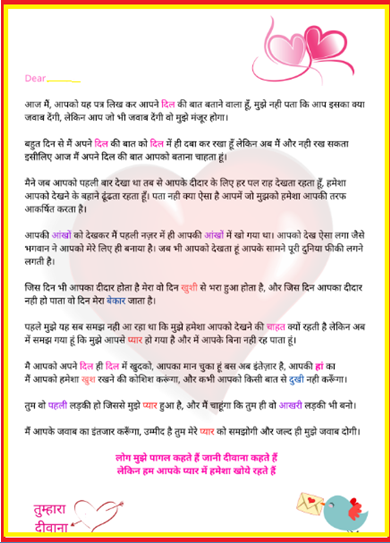 Dear
आज मैं, आपको यह पत्र लिख कर आपने दिल की बात बताने वाला हूँ, मुझे नही पता कि आप इसका क्या
जवाब देंगी, लेकिन आप जो भी जवाब देंगी वो मुझे मंजूर होगा।
बहुत दिन से मैं अपने दिल की बात को दिल में ही दबा कर रखा हूँ लेकिन अब मैं और नही रख सकता
इसीलिए आज मैं अपने दिल की बात आपको बताना चाहता हूं।
मैने जब आपको पहली बार देखा था तब से आपके दीदार के लिए हर पल राह देखता रहता हूँ, हमेशा
आपको देखने के बहाने ढूंढता रहता हूँ। पता नही क्या ऐसा है आपमें जो मुझको हमेशा आपकी तरफ
आकर्षित करता है।
आपकी आंखों को देखकर मैं पहली नज़र में ही आपकी आंखों में खो गया था। आपको देख ऐसा लगा जैसे
भगवान ने आपको मेरे लिए ही बनाया है। जब भी आपको देखता हूं आपके सामने पूरी दुनिया फीकी लगने
लगती है।
जिस दिन भी आपका दीदार होता है मेरा वो दिन खुशी से भरा हुआ होता है, और जिस दिन आपका दीदार
नही हो पाता वो दिन मेरा बेकार जाता है।
पहले मुझे यह सब समझ नही आ रहा था कि मुझे हमेशा आपको देखने की चाहत क्यों रहती है लेकिन अब
में समझ गया हूं कि मुझे आपसे प्यार हो गया है और में आपके बिना नही रह पाता हूं।
मै आपको अपने दिल ही दिल में खुदको, आपका मान चुका हूं बस अब इंतेज़ार है, आपकी हां का
में आपको हमेशा खुश रखने की कोशिश करूंगा, और कभी आपको किसी बात से दुखी नही करूँगा।
तुम वो पहली लड़की हो जिससे मुझे प्यार हुआ है, और मैं चाहूंगा कि तुम ही वो आखरी लड़की भी बनो।
मैं आपके जवाब का इंतजार करूँगा, उम्मीद है तुम मेरे प्यार को समझोगी और जल्द ही मुझे जवाब दोगी।
लोग मुझे पागल कहते हैं जानी दीवाना कहते हैं
लेकिन हम आपके प्यार में हमेशा खोये रहते हैं
तुम्हारा
दीवाना